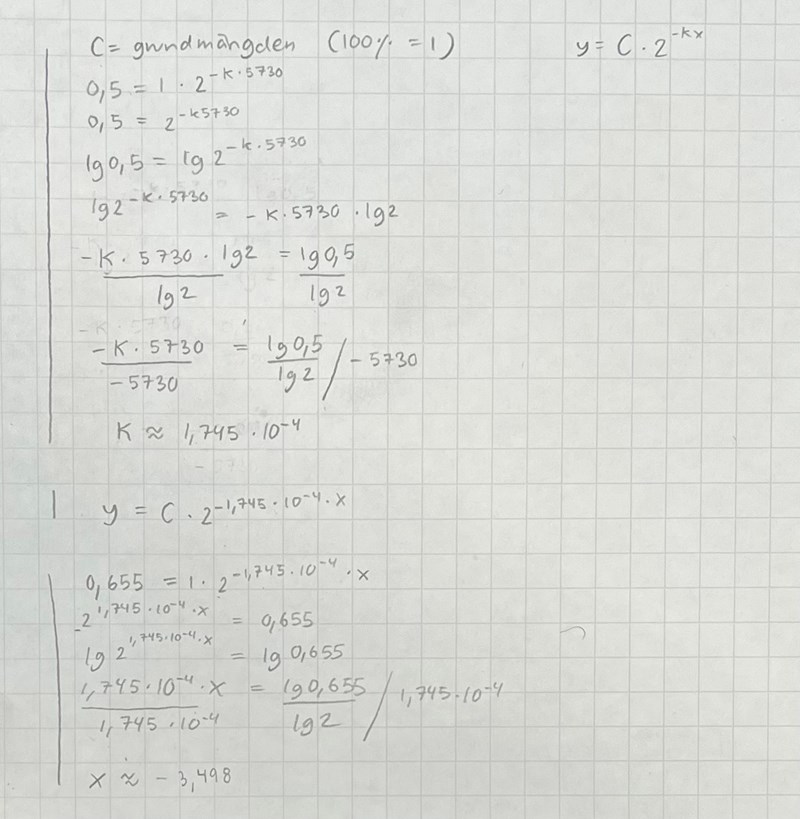 C = grundmängden (100% = 1) y = C · 2^-kx
0,5 = 1 · 2^-k·5730
0,5 = 2^-k5730
lg0,5 = lg 2^-k·5730
lg2^-k·5730 = -k·5730 · lg2
-k · 5730 · lg2 / lg2 = lg0,5 / lg2
-k · 5730 / -5730 = lg0,5 / lg2 / -5730
k ≈ 1,745 · 10^-4
y = C · 2^-1,745·10^-4·x
0,655 = 1 · 2^-1,745·10^-4·x
2^1,745·10^-4·x = 0,655
lg 2^1,745·10^-4·x = lg 0,655
1,745·10^-4·x / 1,745·10^-4 = lg0,655 / lg2 / 1,745·10^-4
x ≈ -3,498